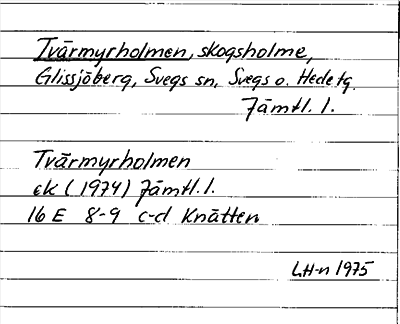 Tvärmyrholmen, skogsholme,
Glissjöberg, Svegs sn, Svegs o. Hede tg.
Jämtl. l.
Tvärmyrholmen
ek (1974) Jämtl. l.
16 E 8-9 c-d Knätten
LH-n 1975